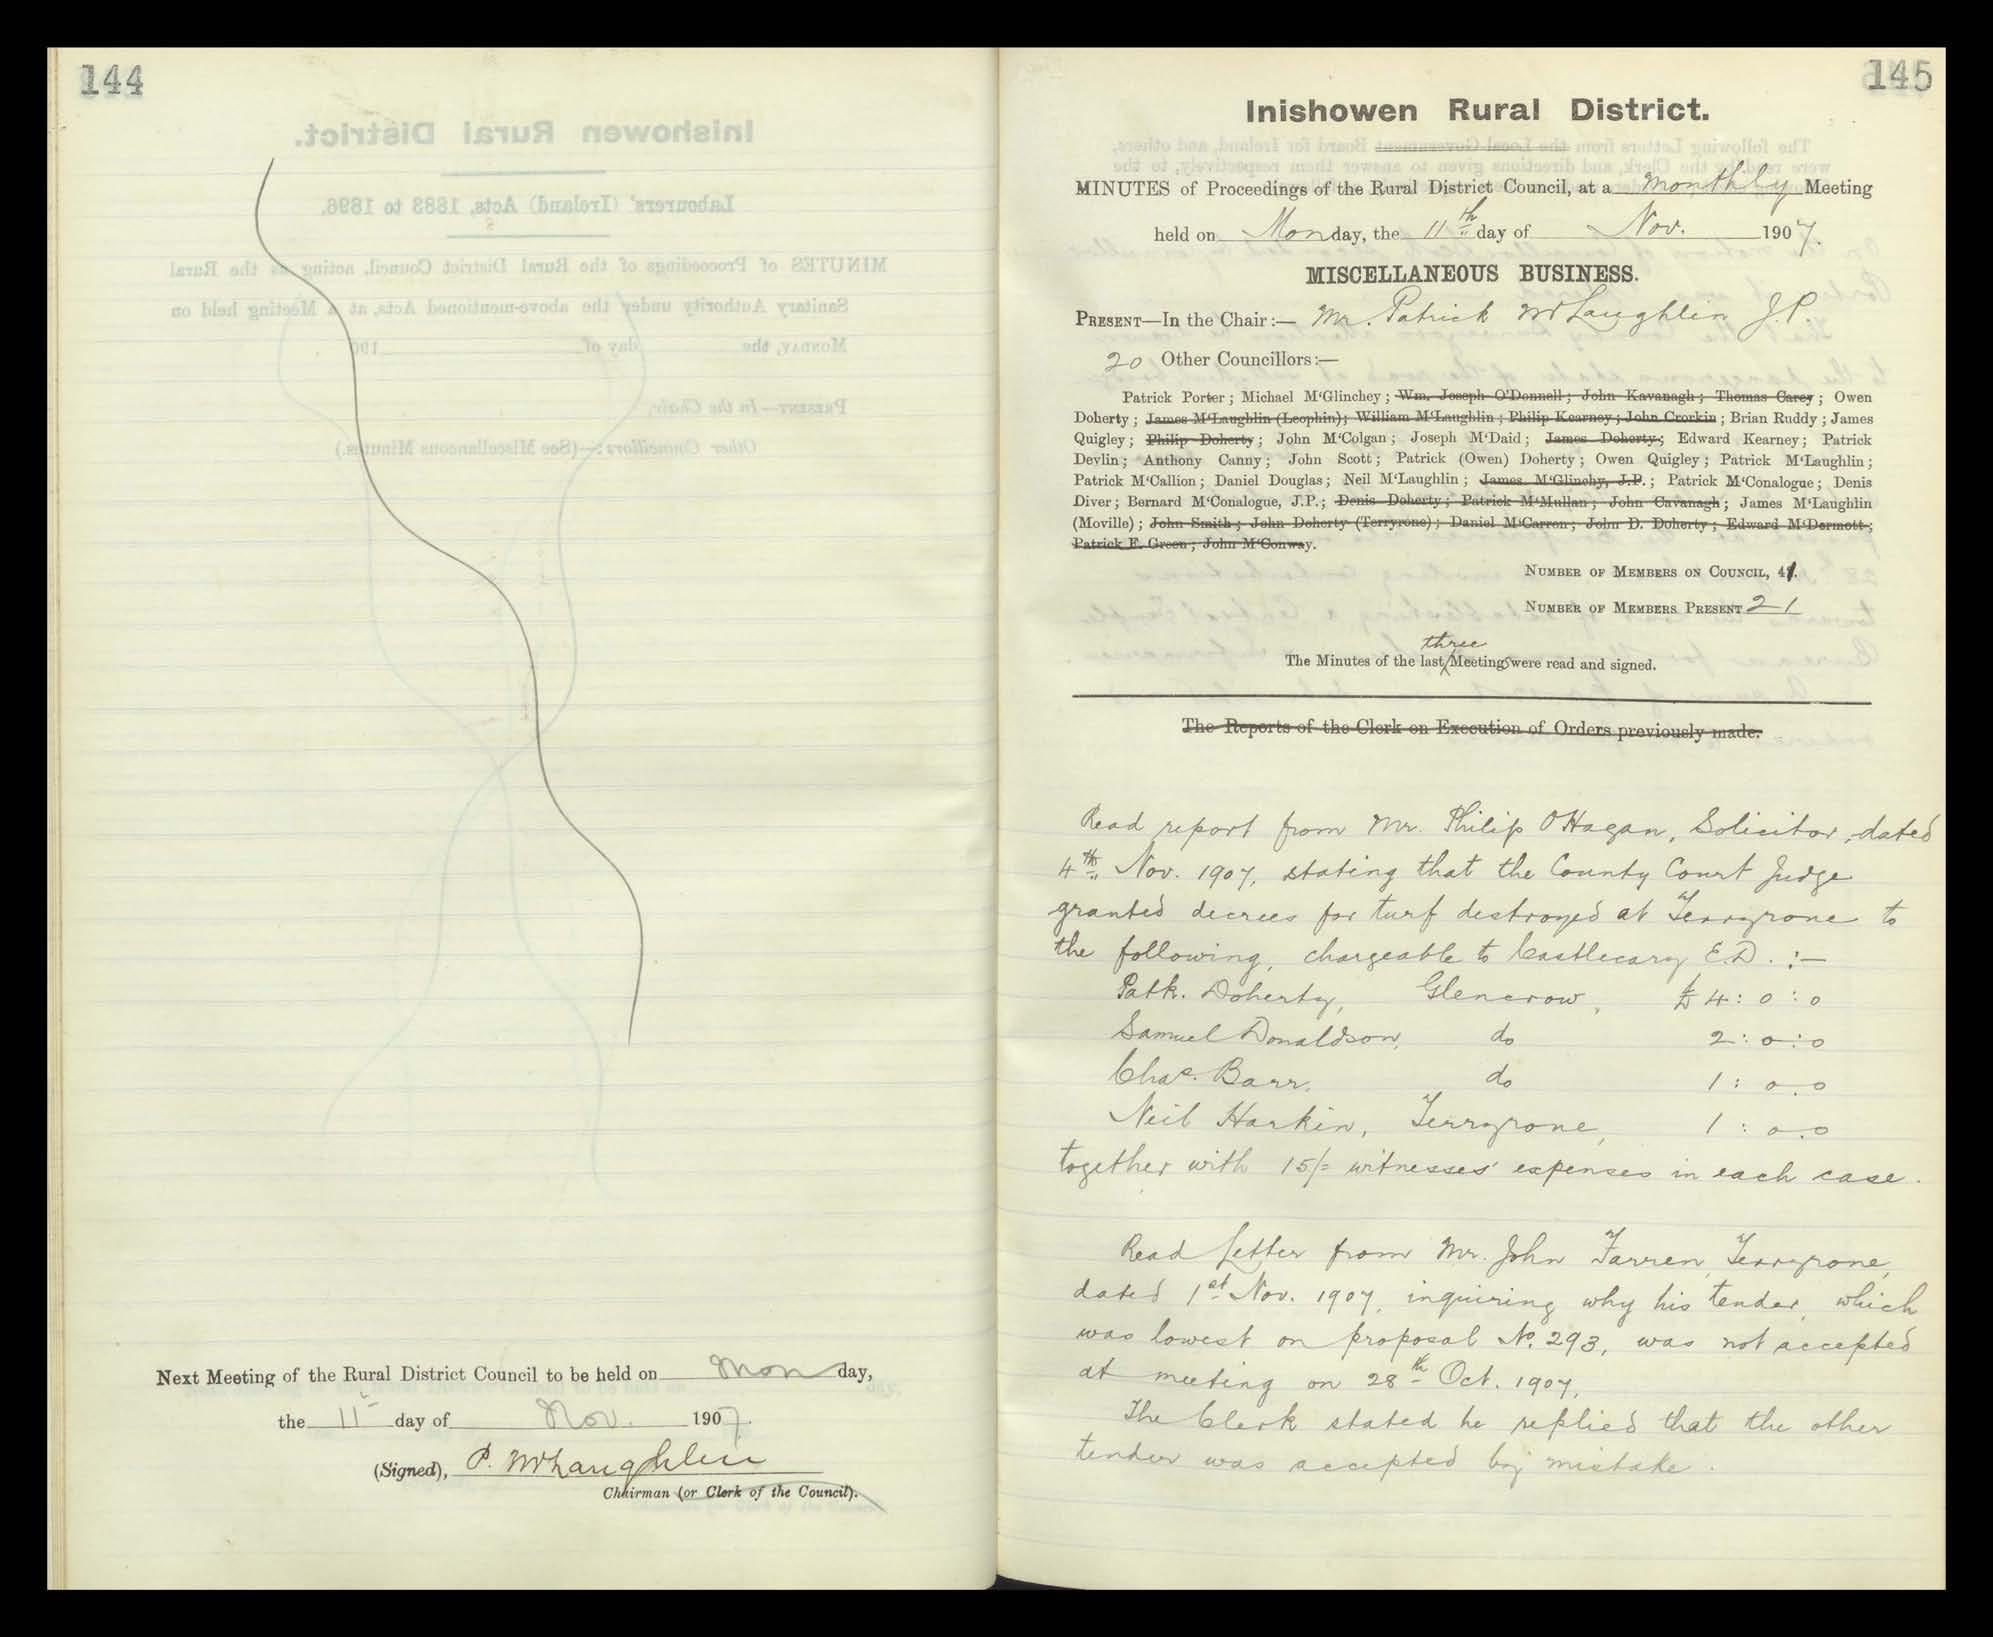 144
Next Meeting of the Rural District Council to be held on Monday,
the 11 day of Nov. 1907.
(Signed), P. McLaughlin
Chairman (or Clerk of the Council).
145
Inishowen Rural District.
MINUTES of Proceedings of the Rural District Council, at a monthly Meeting
held on Monday, the 11th day of Nov. 1907.
MISCELLANEOUS BUSINESS.
PRESENT—In the Chair:— Mr. Patrick McLaughlin J.P.
20 Other Councillors:—
Patrick Porter; Michael M'Glinchey; Wm. Joseph O'Donnell; John Kavanagh; Thomas Carey; Owen
Doherty; James M'Laughlin (Leophin); William M'Laughlin; Philip Kearney; John Crorkin; Brian Ruddy; James
Quigley; Philip Doherty; John M'Colgan; Joseph M'Daid; James Doherty; Edward Kearney; Patrick
Devlin; Anthony Canny; John Scott; Patrick (Owen) Doherty; Owen Quigley; Patrick M'Laughlin;
Patrick M'Callion; Daniel Douglas; Neil M'Laughlin; James M'Glinchy, J.P.; Patrick M'Conalogue; Denis
Diver; Bernard M'Conalogue, J.P.; Denis Doherty; Patrick M'Mullan; John Cavanagh; James M'Laughlin
(Moville); John Smith; John Doherty (Terryrone); Daniel M'Carron; John D. Doherty; Edward M'Dermott;
Patrick E. Green; John M'Conway.
NUMBER OF MEMBERS ON COUNCIL, 41.
NUMBER OF MEMBERS PRESENT 21
The Minutes of the last three Meetings were read and signed.
The Reports of the Clerk on Execution of Orders previously made.
Read report from Mr. Philip O'Hagan, Solicitor, dated
4th Nov. 1907, stating that the County Court Judge
granted decrees for turf destroyed at Terryrone to
the following, chargeable to Castlecary E.D. :—
Patk. Doherty, Glencrow, £4:0:0
Samuel Donaldson, do 2:0:0
Chas. Barr. do 1:0.0
Neil Harkin, Terryrone, 1:0.0
together with 15/= witnesses' expenses in each case.
Read Letter from Mr. John Farren, Terryrone,
dated 1st Nov. 1907, inquiring why his tender, which
was lowest on proposal No. 293, was not accepted
at meeting on 28th Oct. 1907.
The Clerk stated he replied that the other
tender was accepted by mistake.